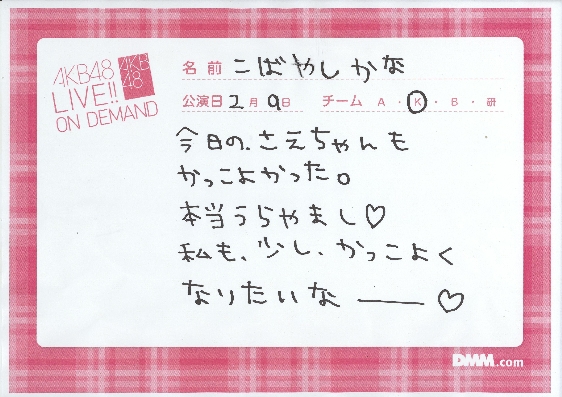 AKB48
LIVE!!
ON DEMAND
AKB
48
名前 こばやしかな
公演日 2月 9日 チーム A・K・B・研
今日の、さえちゃんも
かっこよかった。
本当うらやまし♡
私も、少し、かっこよく
なりたいな――♡
DMM.com